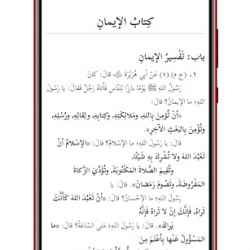 كِتَابُ الإِيمَانِ
باب: تَفْسِيرُ الإِيمَانِ
١- (خ م) (٢) عَنْ أَبِي هُرَيْرَةَ ﵁ قَالَ: كَانَ
رَسُولُ اللهِ ﷺ يَوْمًا بَارِزًا لِلنَّاسِ فَأَتَاهُ رَجُلٌ فَقَالَ: يَا رَسُولَ
اللهِ، مَا الإِيمَانُ؟ قَالَ:
«أَنْ تُؤْمِنَ بِاللهِ، وَمَلَائِكَتِهِ، وَكِتَابِهِ، وَلِقَائِهِ، وَرُسُلِهِ،
وَتُؤْمِنَ بِالْبَعْثِ الآخِرِ».
قَالَ: يَا رَسُولَ اللهِ مَا الإِسْلَامُ؟ قَالَ: «الإِسْلَامُ أَنْ
تَعْبُدَ اللهَ وَلَا تُشْرِكَ بِهِ شَيْئًا،
وَتُقِيمَ الصَّلَاةَ الْمَكْتُوبَةَ، وَتُؤَدِّيَ الزَّكَاةَ
الْمَفْرُوضَةَ، وَتَصُومَ رَمَضَانَ». قَالَ: يَا
رَسُولَ اللهِ مَا الإِحْسَانُ؟ قَالَ: «أَنْ تَعْبُدَ اللهَ كَأَنَّكَ
تَرَاهُ، فَإِنَّكَ إِنْ لَا تَرَاهُ فَإِنَّهُ
يَرَاكَ». قَالَ: يَا رَسُولَ اللهِ مَتَى السَّاعَةُ؟ قَالَ: «مَا
الْمَسْؤُولُ عَنْهَا بِأَعْلَمَ مِنَ